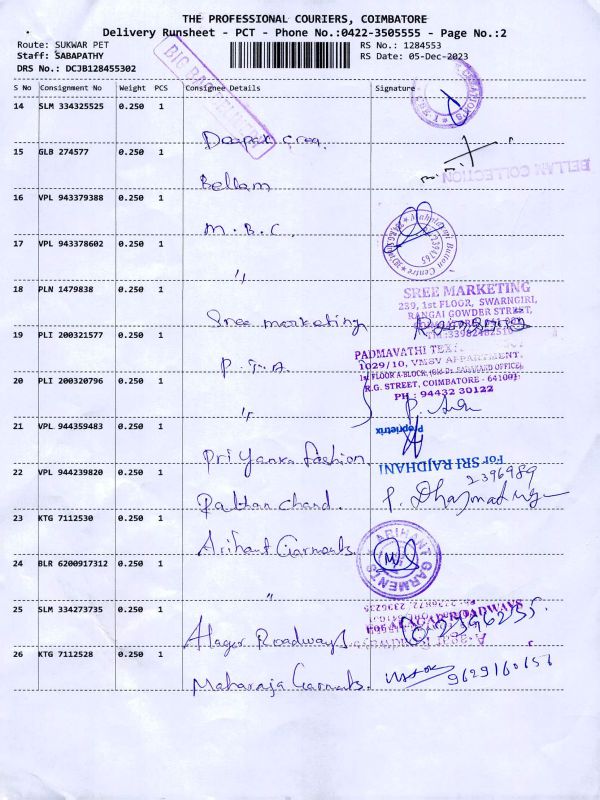 THE PROFESSIONAL COURIERS, COIMBATORE
Delivery Runsheet - PCT - Phone No.:0422-3505555 - Page No.:2
Route: SUKWAR PET
RS No.: 1284553
Staff: SABAPATHY
RS Date: 05-Dec-2023
DRS No.: DCJB128455302
S No Consignment No Weight PCS Consignee Details Signature
14 SLM 334325525 0.250 1
Deepak
15 GLB 274577 0.250 1
Bellam
BELLAM COLLECTION
16 VPL 943379388 0.250 1
M.B.C.
Button Centre
17 VPL 943378602 0.250 1
"
18 PLN 1479838 0.250 1
Sree marketing
SREE MARKETING
239, 1st FLOOR, SWARNGIRI,
RANGAI GOWDER STREET,
19 PLI 200321577 0.250 1
P.T.A.
PADMAVATHI
1029/10, VMSV APPARTMENT,
1st FLOOR A-BLOCK,
R.G. STREET, COIMBATORE - 641001
PH : 94432 30122
20 PLI 200320796 0.250 1
"
21 VPL 944359483 0.250 1
Priyanka fashion
Proprietrix
For SRI RAJDHANI
22 VPL 944239820 0.250 1
chand.
2396989
23 KTG 7112530 0.250 1
Arihant Garments
ARIHANT GARMENTS
24 BLR 6200917312 0.250 1
"
25 SLM 334273735 0.250 1
Alagar Roadways
26 KTG 7112528 0.250 1
Maharaja Garments.
9629160656